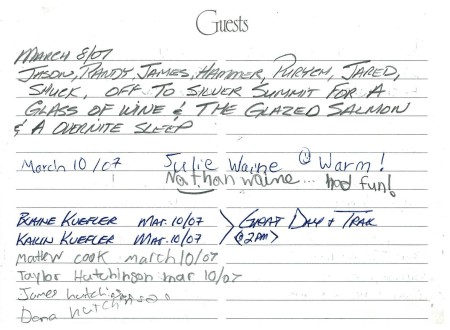 Guests
MARCH 8/07
JASON, RANDY, JAMES, HAMMER, JARED,
SHUCK, OFF TO SILVER SUMMIT FOR A
GLASS OF WINE & THE GLAZED SALMON
& A OVERNITE SLEEP
March 10/07 Julie Waine Warm!
Nathan Waine... had fun!
BLAINE KUEFLER MAR. 10/07 GREAT DAY & TRAIL
KAILIN KUEFLER MAR. 10/07 @ 2PM
Mathew cook march 10/07
Taylor Hutchinson mar 10/07
James hutchinson
Dana hutchinson